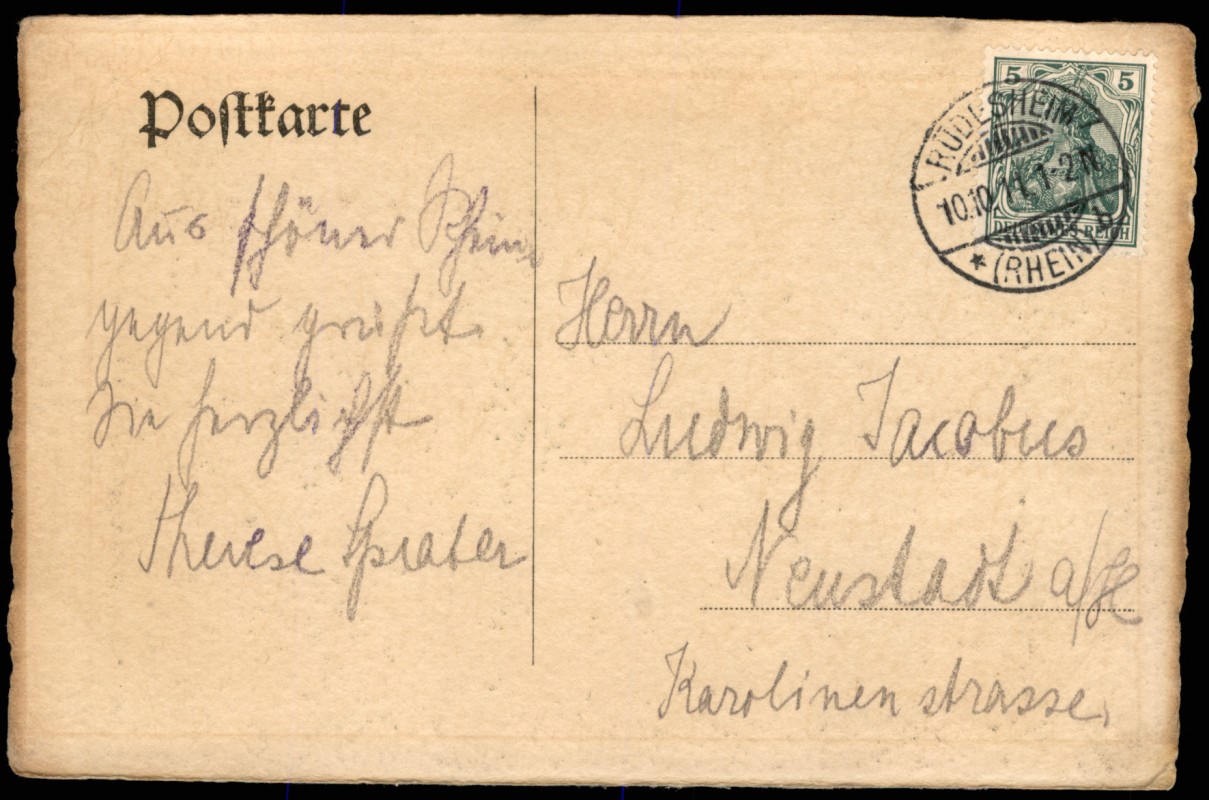 Postkarte
Aus schöner Rhein
gegend grüßt
Sie herzlichst
Therese Sprater
5 5
DEUTSCHES REICH
RÜDESHEIM
10.10.11. 1-2 N.
* (RHEIN) b
Herrn
Ludwig Jacobus
Neustadt a/H
Karolinenstrasse.